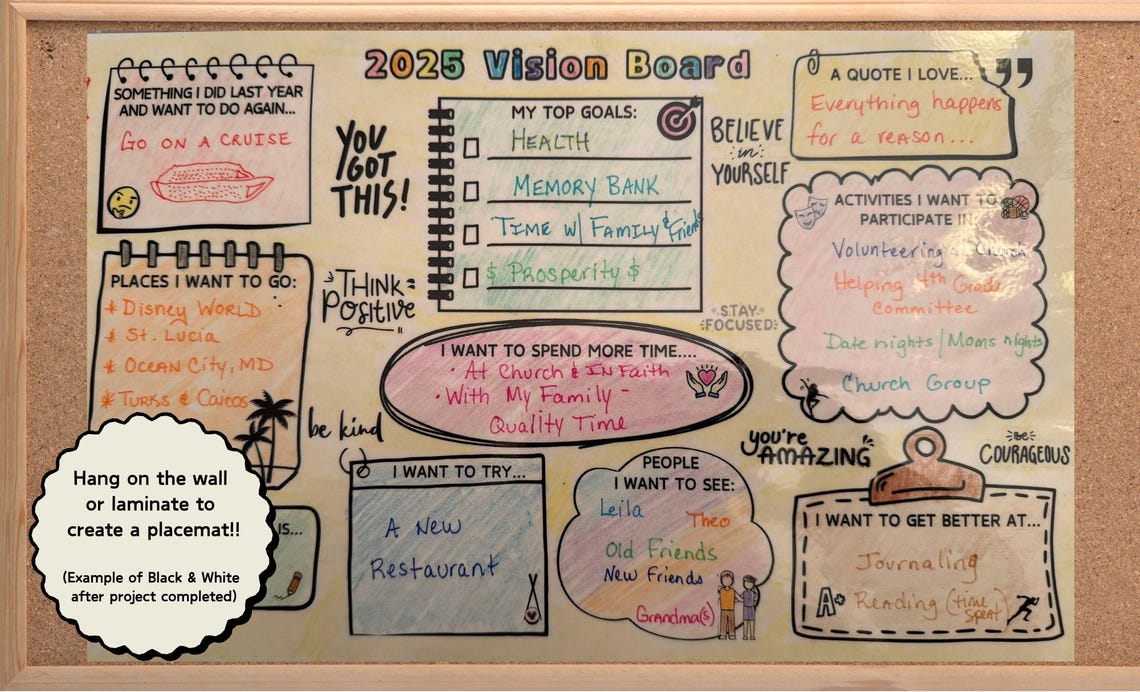 2025 Vision Board
SOMETHING I DID LAST YEAR
AND WANT TO DO AGAIN...
GO ON A CRUISE
YOU
GOT
THIS!
MY TOP GOALS:
HEALTH
MEMORY BANK
TIME W/ FAMILY & Friends
$ Prosperity $
BELIEVE
in
YOURSELF
A QUOTE I LOVE...
Everything happens
for a reason...
PLACES I WANT TO GO:
* DISNEY WORLD
* ST. Lucia
* OCEAN CITY, MD
* TURKS & CAICOS
THINK
Positive
STAY
FOCUSED
ACTIVITIES I WANT TO
PARTICIPATE IN:
Volunteering at Church
Helping 4th Grade
Committee
Date nights / Moms nights
Church Group
I WANT TO SPEND MORE TIME....
• At Church & IN Faith
• With My Family -
Quality Time
be kind
you're
AMAZING
be
COURAGEOUS
Hang on the wall
or laminate to
create a placemat!!
(Example of Black & White
after project completed)
IS...
I WANT TO TRY...
A New
Restaurant
PEOPLE
I WANT TO SEE:
Leila
Theo
Old Friends
New Friends
Grandma(s)
I WANT TO GET BETTER AT...
Journaling
A+
Reading (time spent)